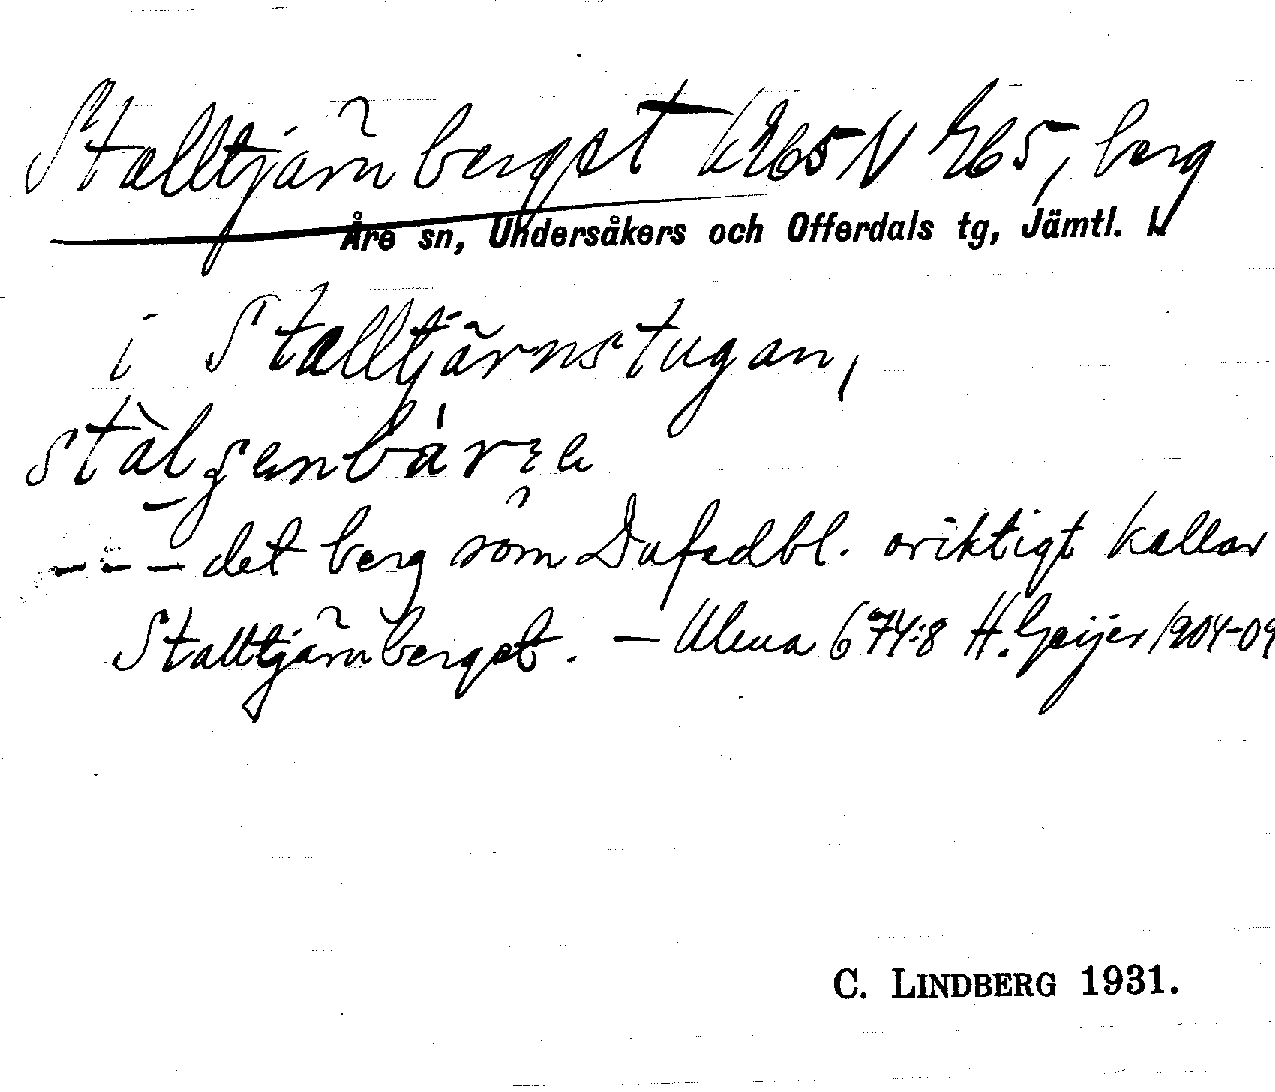 Stalltjärnberget k265 N 265, berg
Åre sn, Undersåkers och Offerdals tg, Jämtl. l.
i Stalltjärnstugan,
--- det berg som Dufedbl. oriktigt kallar
Stalltjärnberget. — Ulma 674:8 H. Geijer 1904-09
C. LINDBERG 1931.